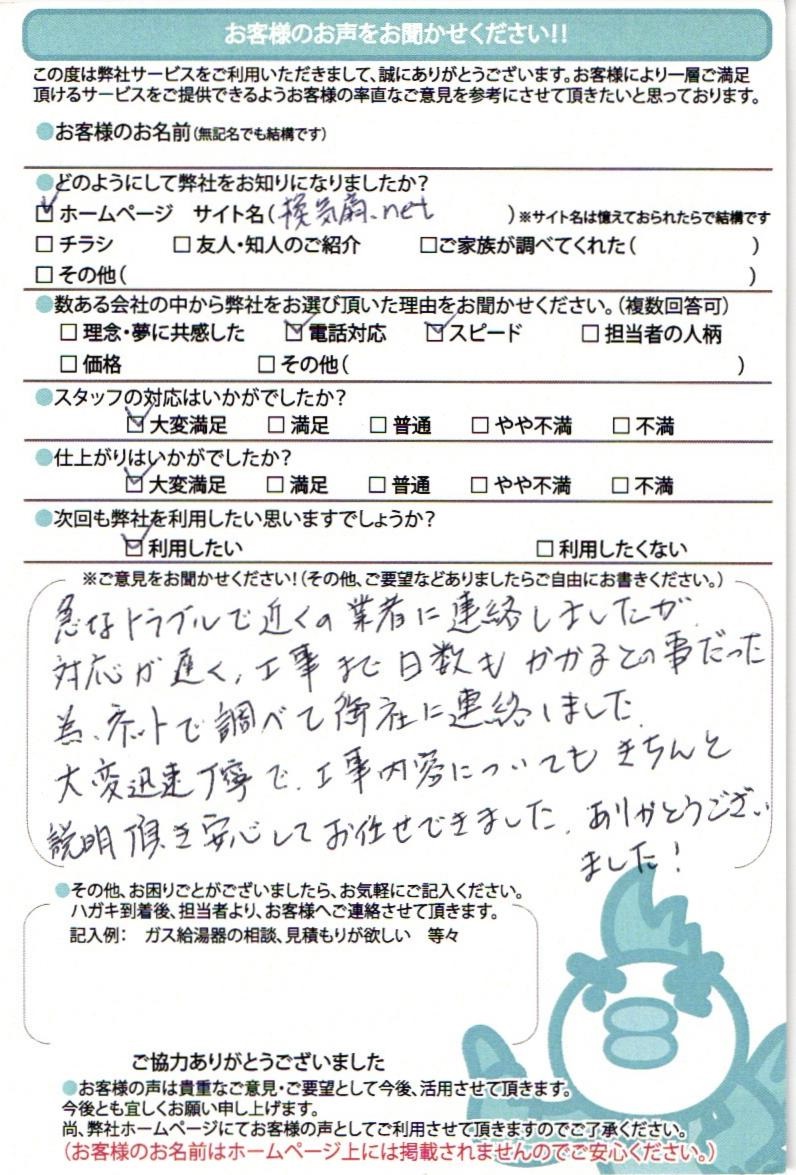 お客様のお声をお聞かせください!!
この度は弊社サービスをご利用いただきまして、誠にありがとうございます。お客様により一層ご満足
頂けるサービスをご提供できるようお客様の率直なご意見を参考にさせて頂きたいと思っております。
●お客様のお名前(無記名でも結構です)
●どのようにして弊社をお知りになりましたか?
☑ホームページ サイト名(換気扇.net )※サイト名は憶えておられたらで結構です
□チラシ □友人・知人のご紹介 □ご家族が調べてくれた( )
□その他( )
●数ある会社の中から弊社をお選び頂いた理由をお聞かせください。(複数回答可)
□理念・夢に共感した ☑電話対応 ☑スピード □担当者の人柄
□価格 □その他( )
●スタッフの対応はいかがでしたか?
☑大変満足 □満足 □普通 □やや不満 □不満
●仕上がりはいかがでしたか?
☑大変満足 □満足 □普通 □やや不満 □不満
●次回も弊社を利用したい思いますでしょうか?
☑利用したい □利用したくない
※ご意見をお聞かせください!(その他、ご要望などありましたらご自由にお書きください。)
急なトラブルで近くの業者に連絡しましたが、
対応が遅く、工事まで日数もかかるとの事だった
為、ネットで調べて御社に連絡しました。
大変迅速丁寧で、工事内容についてもきちんと
説明頂き安心してお任せできました。ありがとうござい
ました!
●その他、お困りごとがございましたら、お気軽にご記入ください。
ハガキ到着後、担当者より、お客様へご連絡させて頂きます。
記入例: ガス給湯器の相談、見積もりが欲しい 等々
ご協力ありがとうございました
●お客様の声は貴重なご意見・ご要望として今後、活用させて頂きます。
今後とも宜しくお願い申し上げます。
尚、弊社ホームページにてお客様の声としてご利用させて頂きますのでご了承ください。
(お客様のお名前はホームページ上には掲載されませんのでご安心ください。)